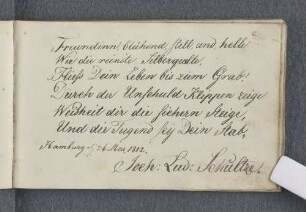 Freundinn, blühend, still, und helle
Wie die reinste Silberquelle,
Fließ Dein Leben bis zum Grab!
Durch der Unschuld Klippen zeige
Weisheit dir die sichern Steige,
Und die Tugend sey Dein Stab.
Hamburg 26 1812.
Joch: Lud: Schultze.